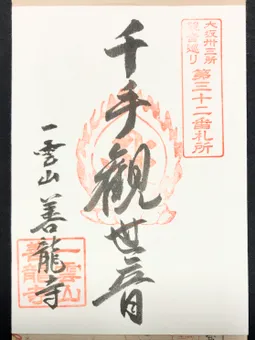 大坂卅三所
観音巡り
第三十二番札所
千手観世音
一雲山善龍寺
一雲山
善龍寺